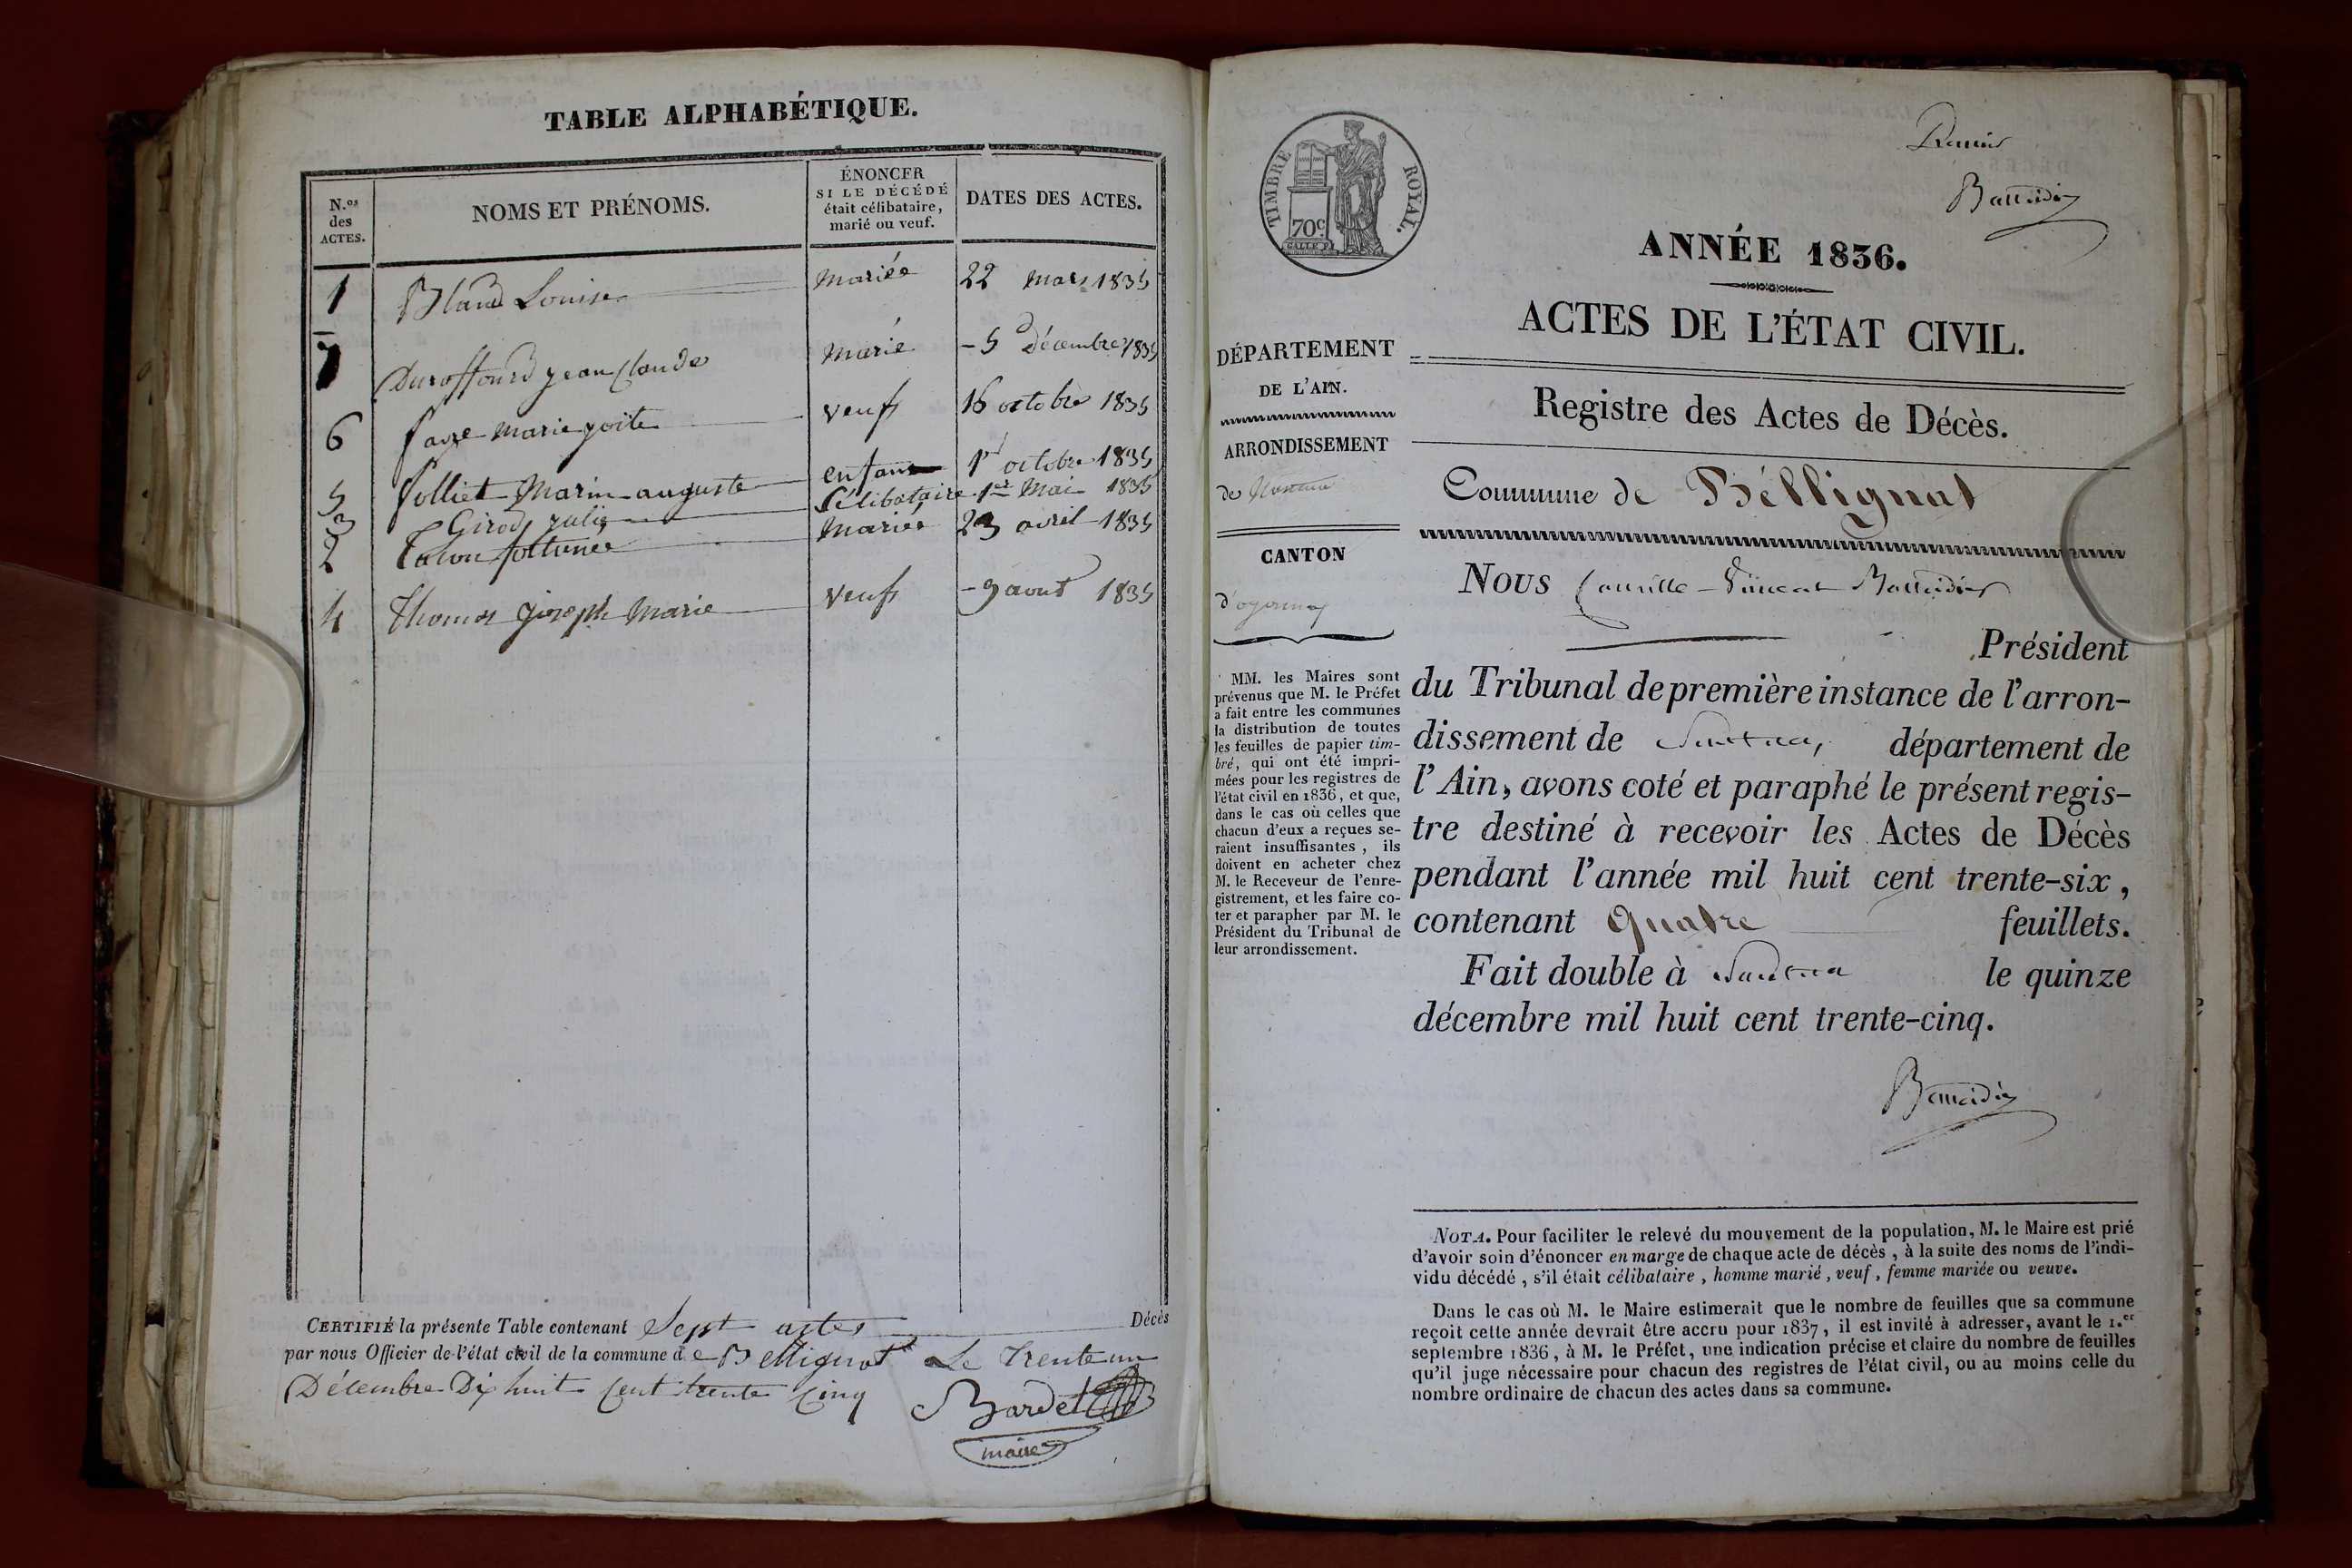 TABLE ALPHABÉTIQUE.
N.os des ACTES.
NOMS ET PRÉNOMS.
ÉNONCER
SI LE DÉCÉDÉ
était célibataire,
marié ou veuf.
DATES DES ACTES.
1 Louise mariée 22 mars 1835
7 Duroffourd jean Claude marié - 5 Décembre 1835
6 favre marie veuf 16 octobre 1835
5 folliet Marin auguste enfant 1er octobre 1835
3 Girod julie Célibataire 1er Mai 1835
2 fortunée mariée 23 avril 1835
4 Thomas joseph Marie veuf - 9 aout 1835
CERTIFIÉ la présente Table contenant Sept actes Décès
par nous Officier de l'état civil de la commune de Bellignat Le trente un
Décembre Dix huit Cent trente Cinq
Bardet
maire
TIMBRE ROYAL.
70c.
Premier
ANNÉE 1836.
ACTES DE L'ÉTAT CIVIL.
DÉPARTEMENT
DE L'AIN.
Registre des Actes de Décès.
ARRONDISSEMENT
de Nantua
Commune de Béllignat
CANTON
d'oyonnax
Nous Camille - Vincent
Président
du Tribunal de première instance de l'arron-
dissement de Nantua, département de
l'Ain, avons coté et paraphé le présent regis-
tre destiné à recevoir les Actes de Décès
pendant l'année mil huit cent trente-six,
contenant quatre feuillets.
Fait double à Nantua le quinze
décembre mil huit cent trente-cinq.
MM. les Maires sont
prévenus que M. le Préfet
a fait entre les communes
la distribution de toutes
les feuilles de papier tim-
bré, qui ont été impri-
mées pour les registres de
l'état civil en 1836, et que,
dans le cas où celles que
chacun d'eux a reçues se-
raient insuffisantes, ils
doivent en acheter chez
M. le Receveur de l'enre-
gistrement, et les faire co-
ter et parapher par M. le
Président du Tribunal de
leur arrondissement.
NOTA. Pour faciliter le relevé du mouvement de la population, M. le Maire est prié
d'avoir soin d'énoncer en marge de chaque acte de décès, à la suite des noms de l'indi-
vidu décédé, s'il était célibataire, homme marié, veuf, femme mariée ou veuve.
Dans le cas où M. le Maire estimerait que le nombre de feuilles que sa commune
reçoit cette année devrait être accru pour 1837, il est invité à adresser, avant le 1.er
septembre 1836, à M. le Préfet, une indication précise et claire du nombre de feuilles
qu'il juge nécessaire pour chacun des registres de l'état civil, ou au moins celle du
nombre ordinaire de chacun des actes dans sa commune.